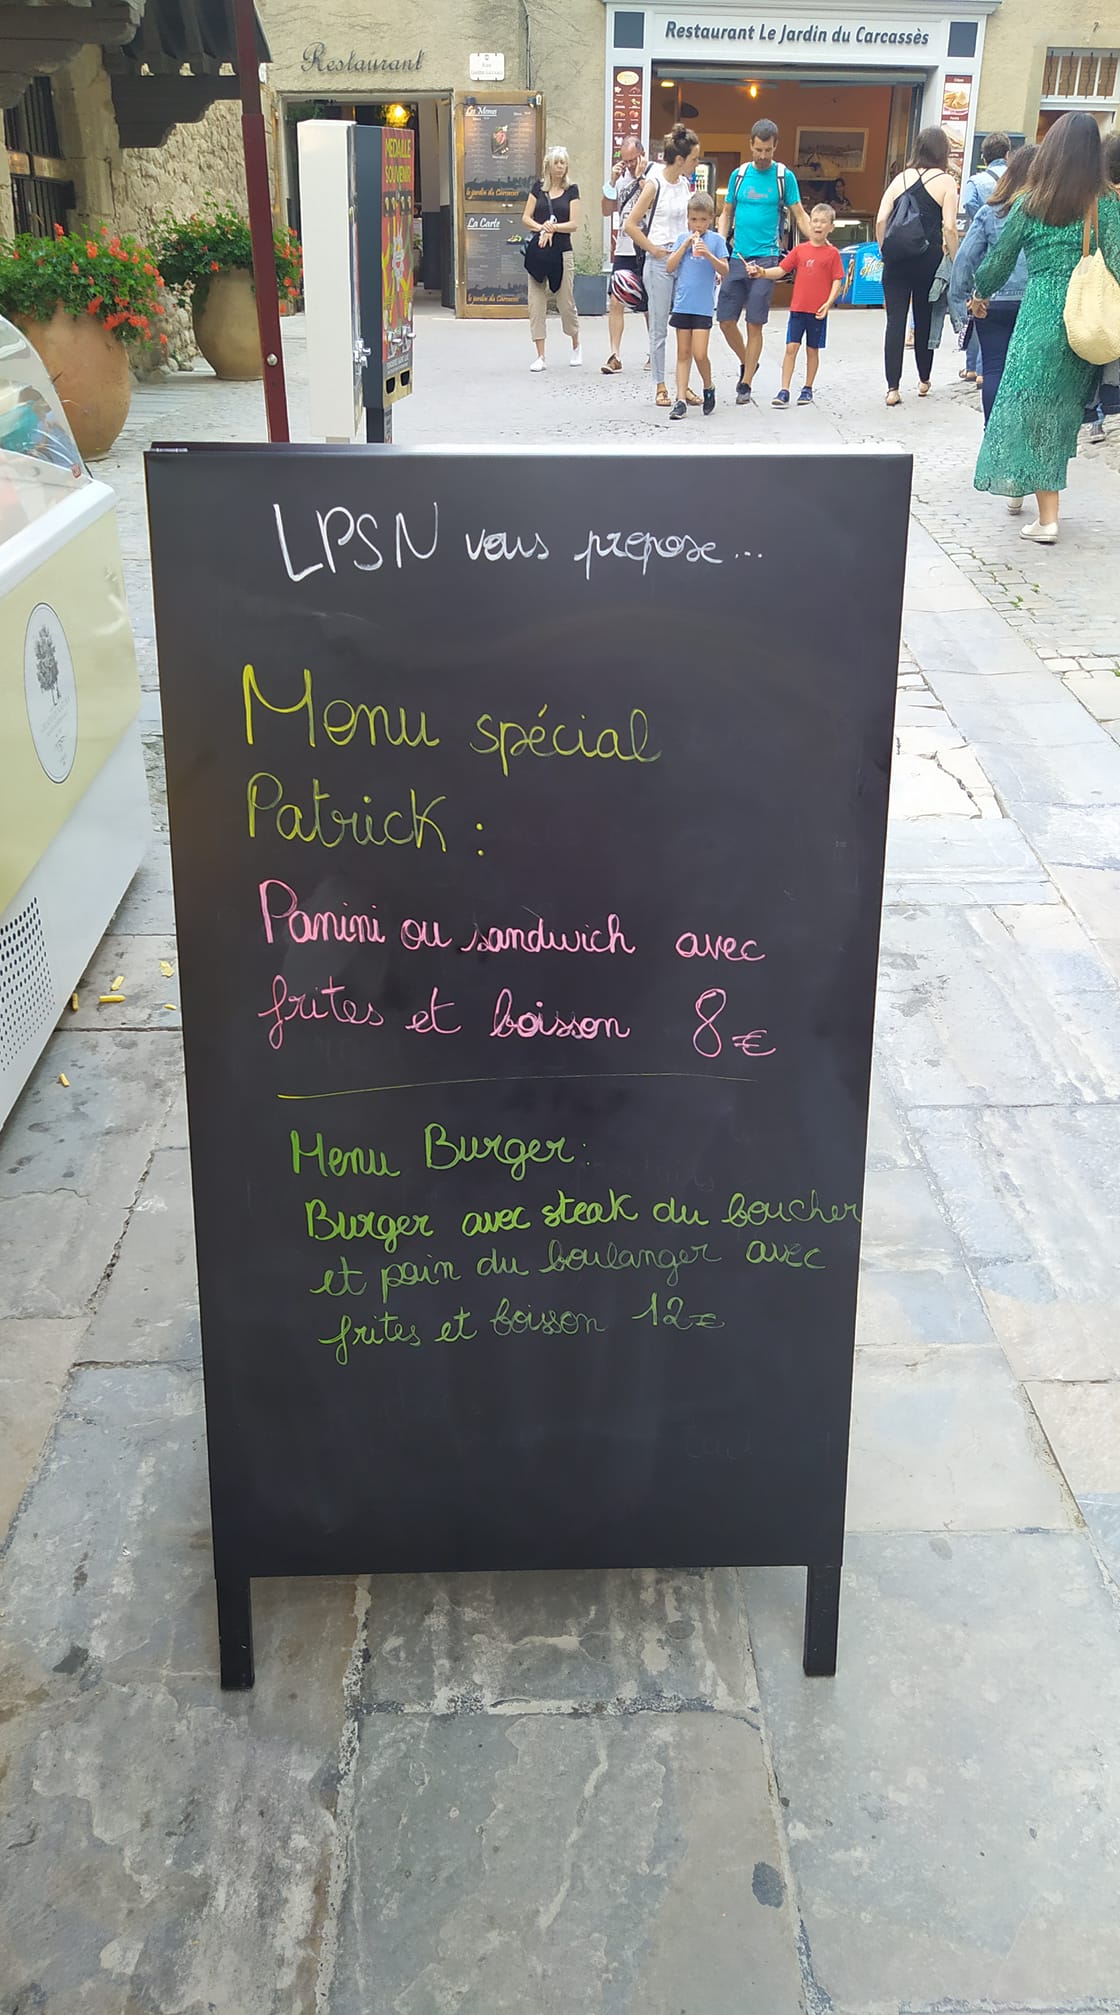 Restaurant
Restaurant Le Jardin du Carcassès
MEDAILLE
SOUVENIR
Les Menus
le jardin du Carcassès
La Carte
le jardin du Carcassès
LPSN vous propose...
Menu spécial
Patrick :
Panini ou sandwich avec
frites et boisson 8€
Menu Burger:
Burger avec steak du boucher
et pain du boulanger avec
frites et boisson 12€